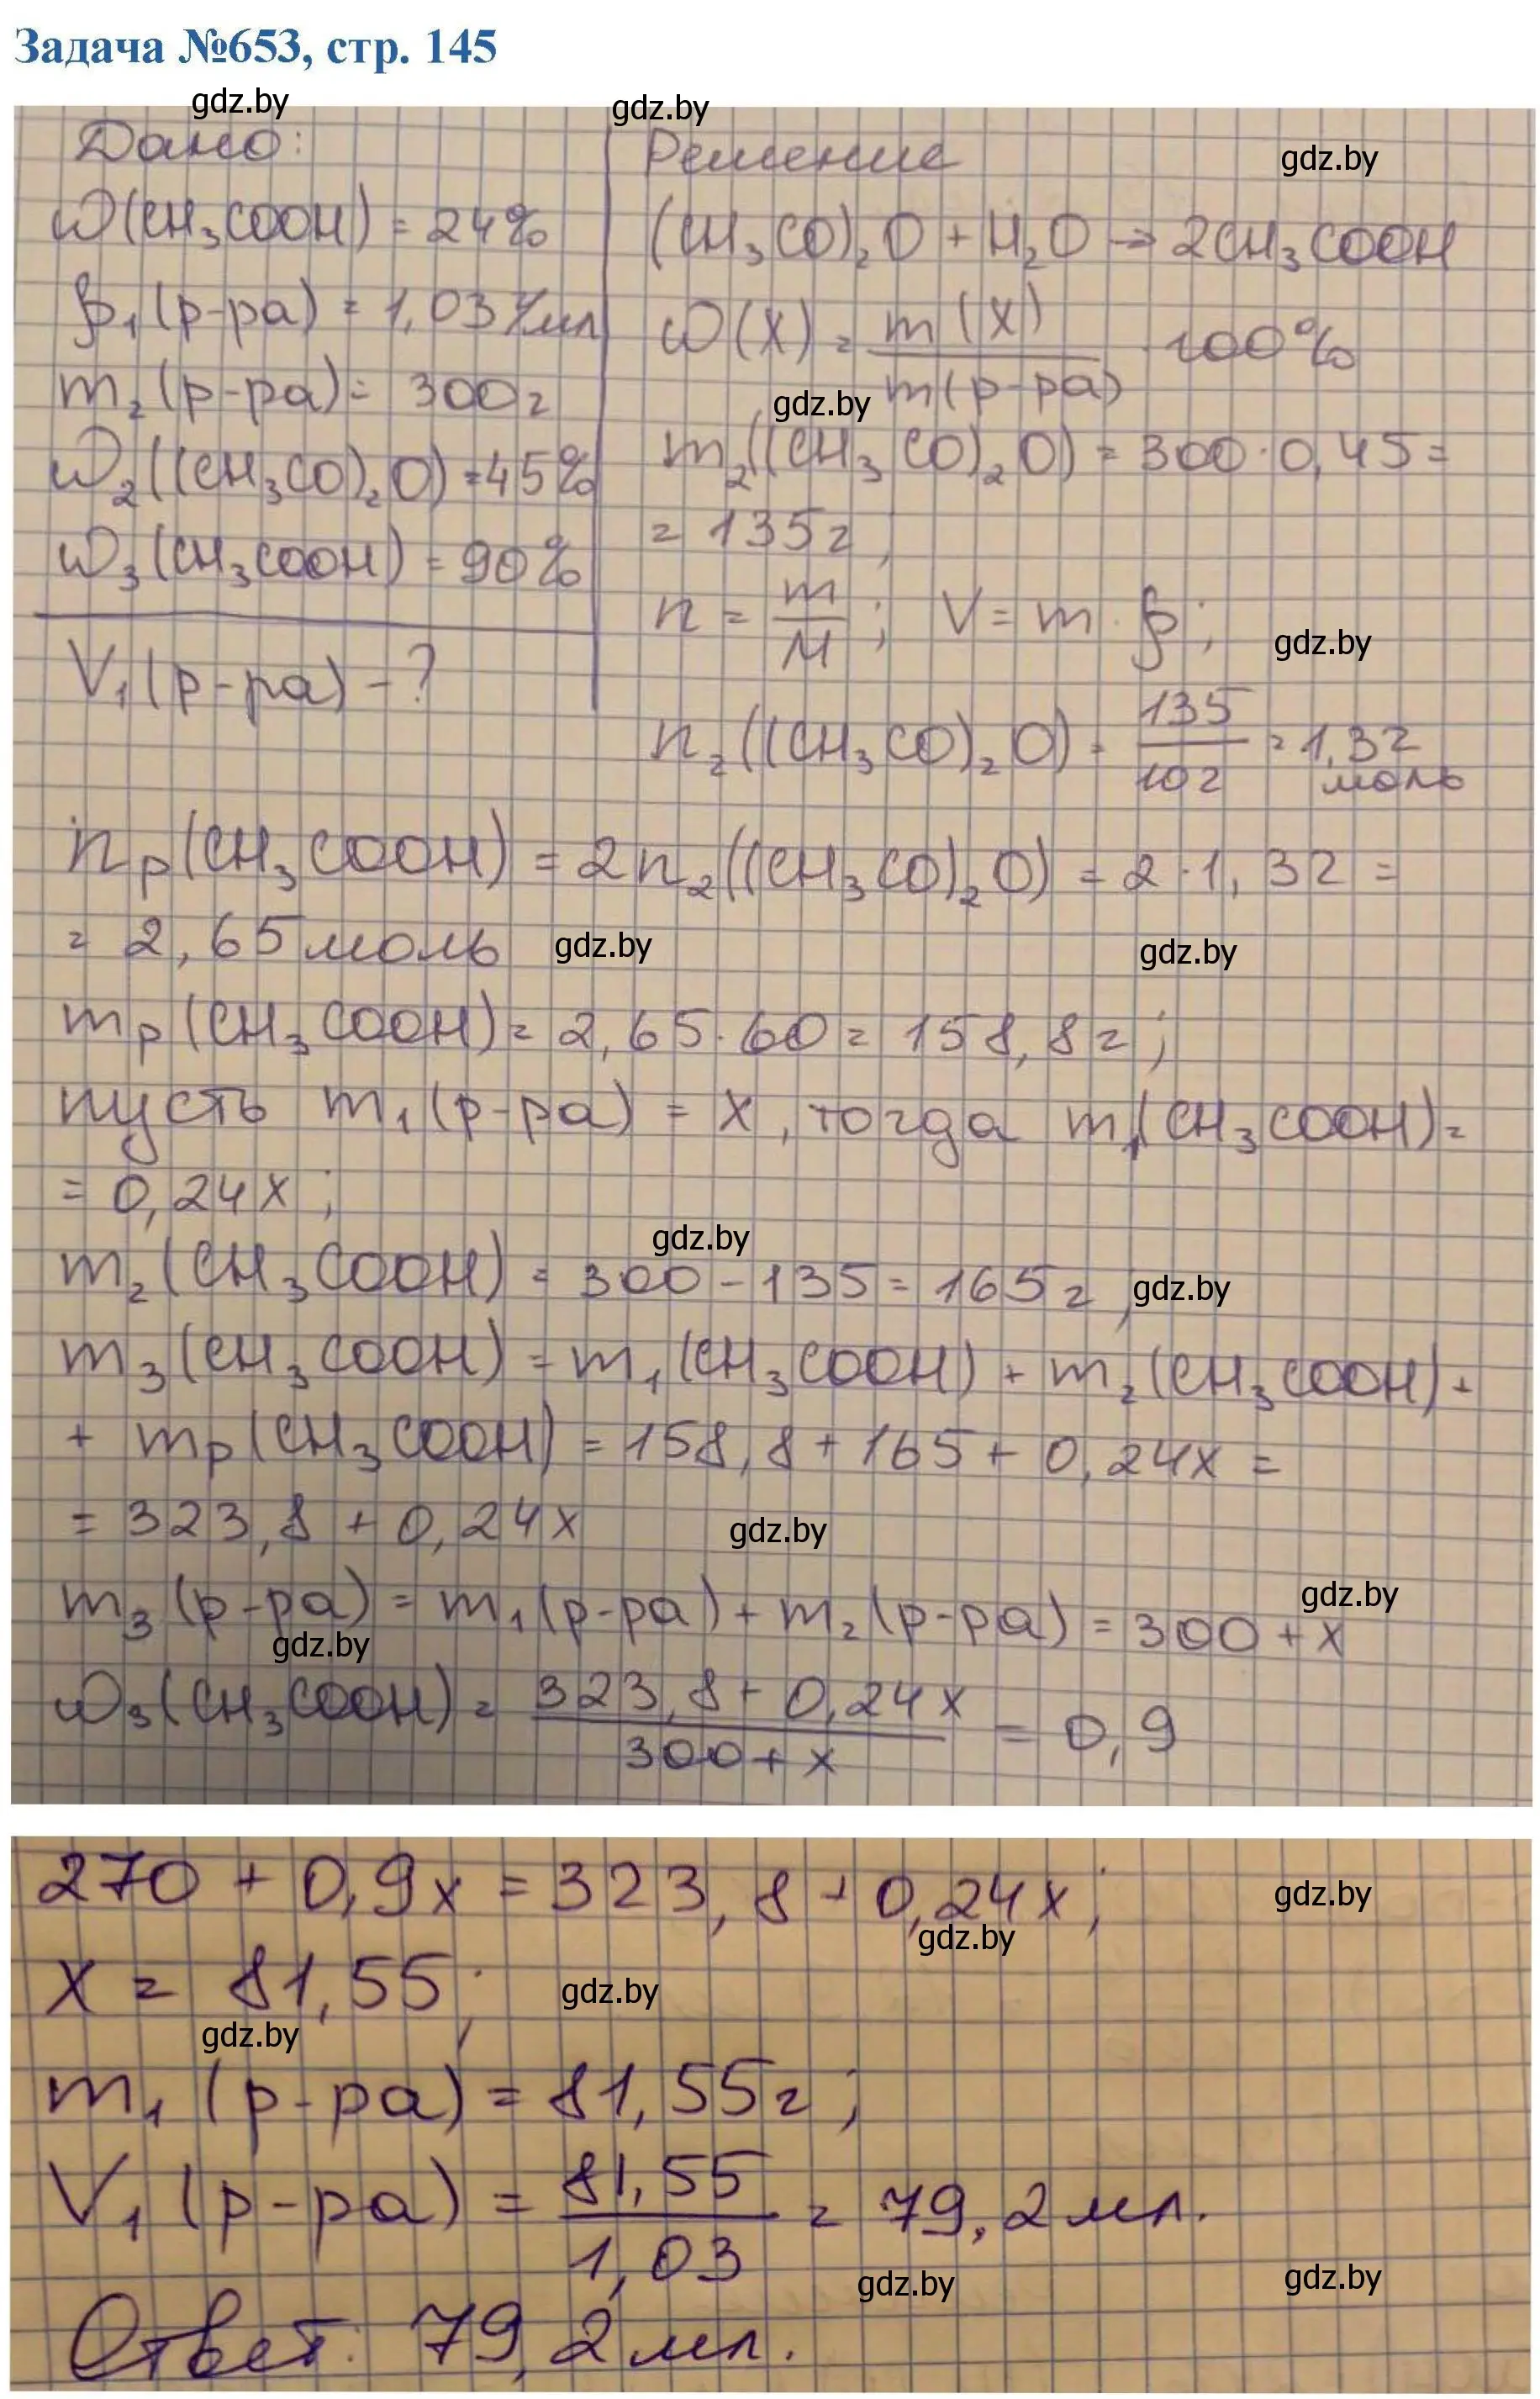 Задача №653, стр. 145
gdz.by
gdz.by
Дано:
ω(CH₃COOH) = 24%
ρ₁(р-ра) = 1,03 г/мл
m₂(р-ра) = 300г
ω₂((CH₃CO)₂O) = 45%
ω₃(CH₃COOH) = 90%
V₁(р-ра) - ?
Решение
gdz.by
(CH₃CO)₂O + H₂O → 2CH₃COOH
ω(X) = m(X) / m(р-ра) · 100%
gdz.by
m₂((CH₃CO)₂O) = 300 · 0,45 =
= 135г;
n = m / M ; V = m · ρ;
gdz.by
n₂((CH₃CO)₂O) = 135 / 102 = 1,32 моль
nₚ(CH₃COOH) = 2n₂((CH₃CO)₂O) = 2 · 1,32 =
= 2,65 моль
gdz.by
gdz.by
mₚ(CH₃COOH) = 2,65 · 60 = 158,8г;
пусть m₁(р-ра) = x, тогда m₁(CH₃COOH) =
= 0,24x;
gdz.by
m₂(CH₃COOH) = 300 - 135 = 165г;
gdz.by
m₃(CH₃COOH) = m₁(CH₃COOH) + m₂(CH₃COOH) +
+ mₚ(CH₃COOH) = 158,8 + 165 + 0,24x =
= 323,8 + 0,24x
gdz.by
m₃(р-ра) = m₁(р-ра) + m₂(р-ра) = 300 + x
gdz.by
gdz.by
ω₃(CH₃COOH) = 323,8 + 0,24x / 300 + x = 0,9
270 + 0,9x = 323,8 + 0,24x;
gdz.by
gdz.by
x = 81,55;
gdz.by
gdz.by
m₁(р-ра) = 81,55г;
V₁(р-ра) = 81,55 / 1,03 = 79,2 мл.
gdz.by
gdz.by
Ответ: 79,2 мл.